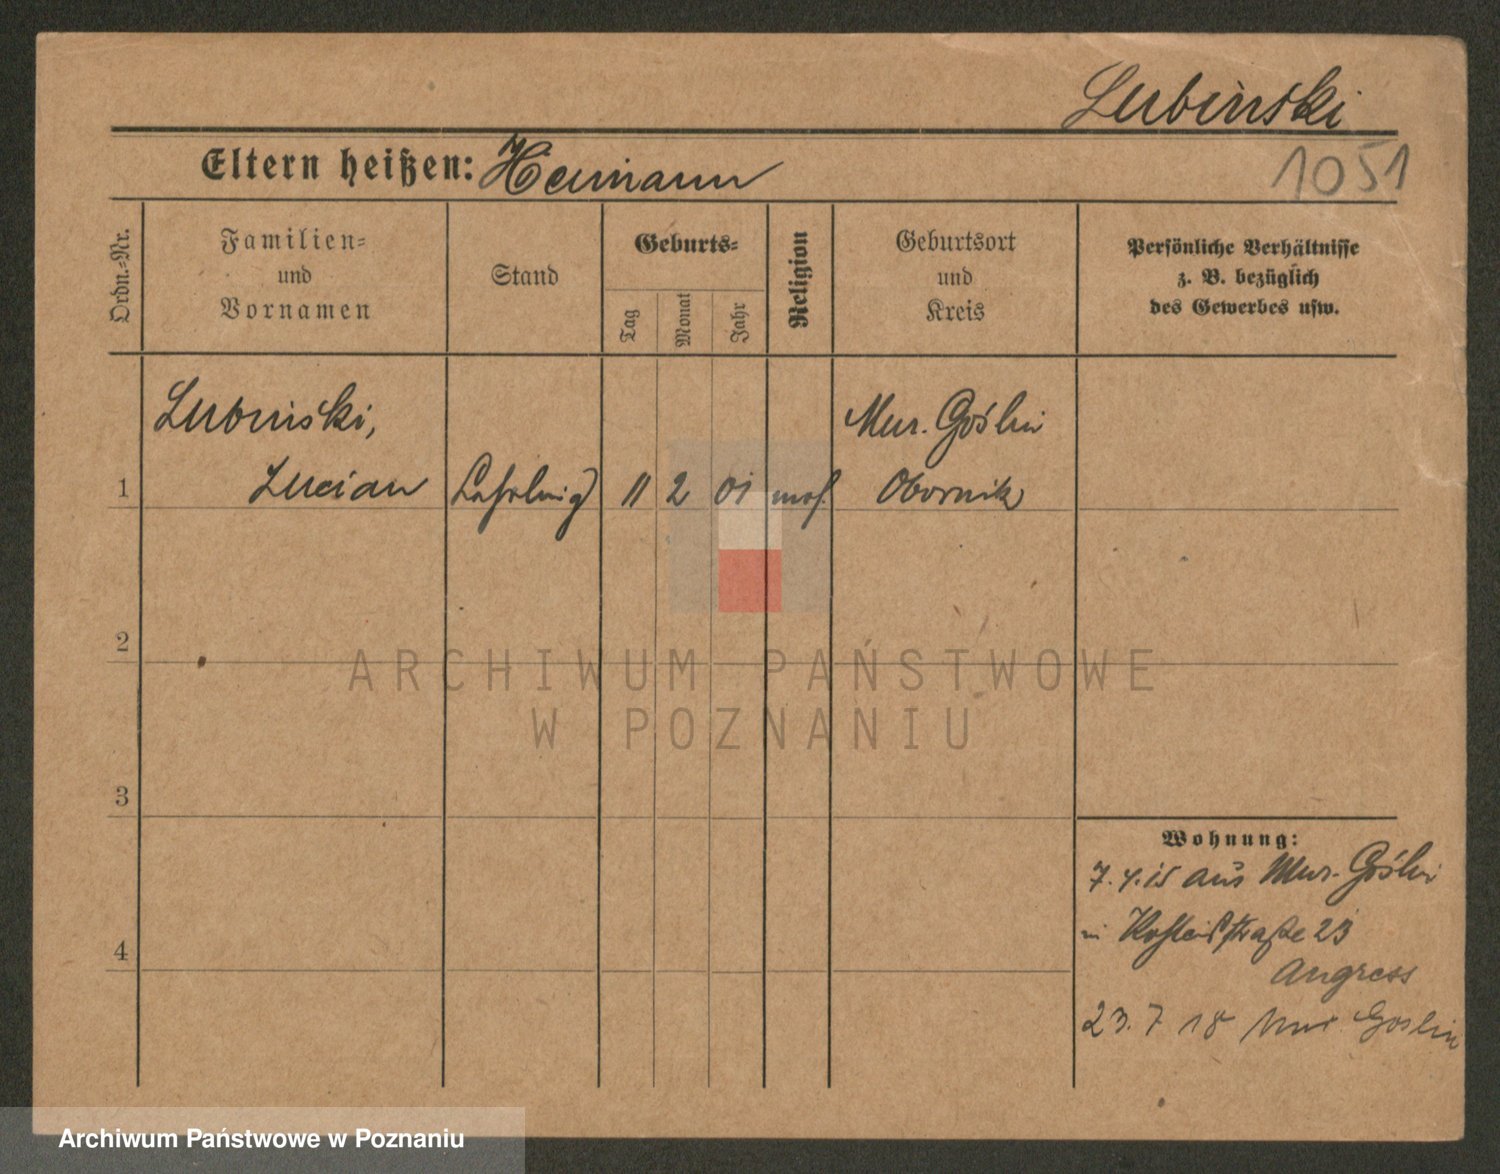 Lubinski
Eltern heißen: Hermann
1051
Ordn.-Nr.
Familien-
und
Vornamen
Stand
Geburts-
Tag
Monat
Jahr
Religion
Geburtsort
und
Kreis
Persönliche Verhältnisse
z. B. bezüglich
des Gewerbes usw.
Lubinski,
Mur. Goślin
1 Lucian Lehrling 11 2 01 mos. Obornik
2
ARCHIWUM PAŃSTWOWE
W POZNANIU
3
Wohnung:
7.4.15 aus Mur. Goślin
in straße 23
4
Angress
23. 7 18 Mur. Goslin
Archiwum Państwowe w Poznaniu